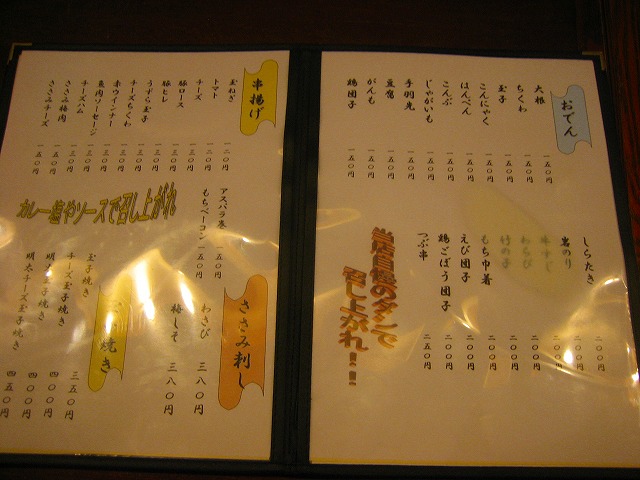 おでん
大根 一五〇円
ちくわ 一五〇円
玉子 一五〇円
こんにゃく 一五〇円
はんぺん 一五〇円
こんぶ 一五〇円
じゃがいも 一五〇円
手羽先 一五〇円
豆腐 一五〇円
がんも 一五〇円
鶏団子 一五〇円
しらたき 二〇〇円
岩のり 二〇〇円
牛すじ 二〇〇円
わらび 二〇〇円
竹の子 二〇〇円
もち巾着 二〇〇円
えび団子 二〇〇円
鶏ごぼう団子 二〇〇円
つぶ串 二五〇円
当店自慢のダシで
召し上がれ!!
串揚げ
玉ねぎ 一二〇円
トマト 一二〇円
チーズ 一二〇円
豚ロース 一三〇円
豚ヒレ 一三〇円
うずら玉子 一三〇円
チーズちくわ 一三〇円
赤ウインナー 一三〇円
魚肉ソーセージ 一三〇円
チーズハム 一三〇円
ささみ梅肉 一五〇円
ささみチーズ 一五〇円
アスパラ巻 一五〇円
もちベーコン 一五〇円
カレー塩やソースで召し上がれ
ささみ刺し
わさび 三八〇円
梅しそ 三八〇円
焼き
玉子焼き 三五〇円
チーズ玉子焼き 四〇〇円
明太玉子焼き 四〇〇円
明太チーズ玉子焼き 四五〇円